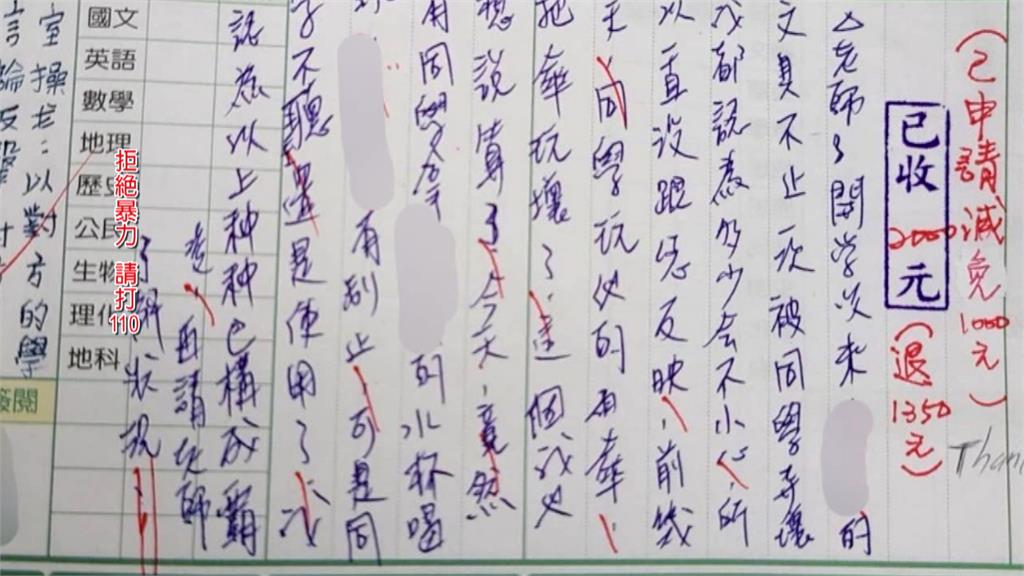 （已申請減免1000元）
已收2000元
（退1350元）
Than
老師～開學以來的
文具不止一次被同學弄壞
我都認為多少會不小心，所
以一直沒跟您反映，前幾
天，同學玩她的
把
壞了，這個我也
想說算了，今天，竟然
用同學拿
的水杯喝
有制止，可是同
學不聽還是使用了，我
認為以上種種已構成霸
凌，再請老師
了解狀況
國文
英語
數學
地理
歷史
公民
生物
理化
地科
拒絕暴力 請打110
室操老：以對方的學
言論反擊對方
簽閱